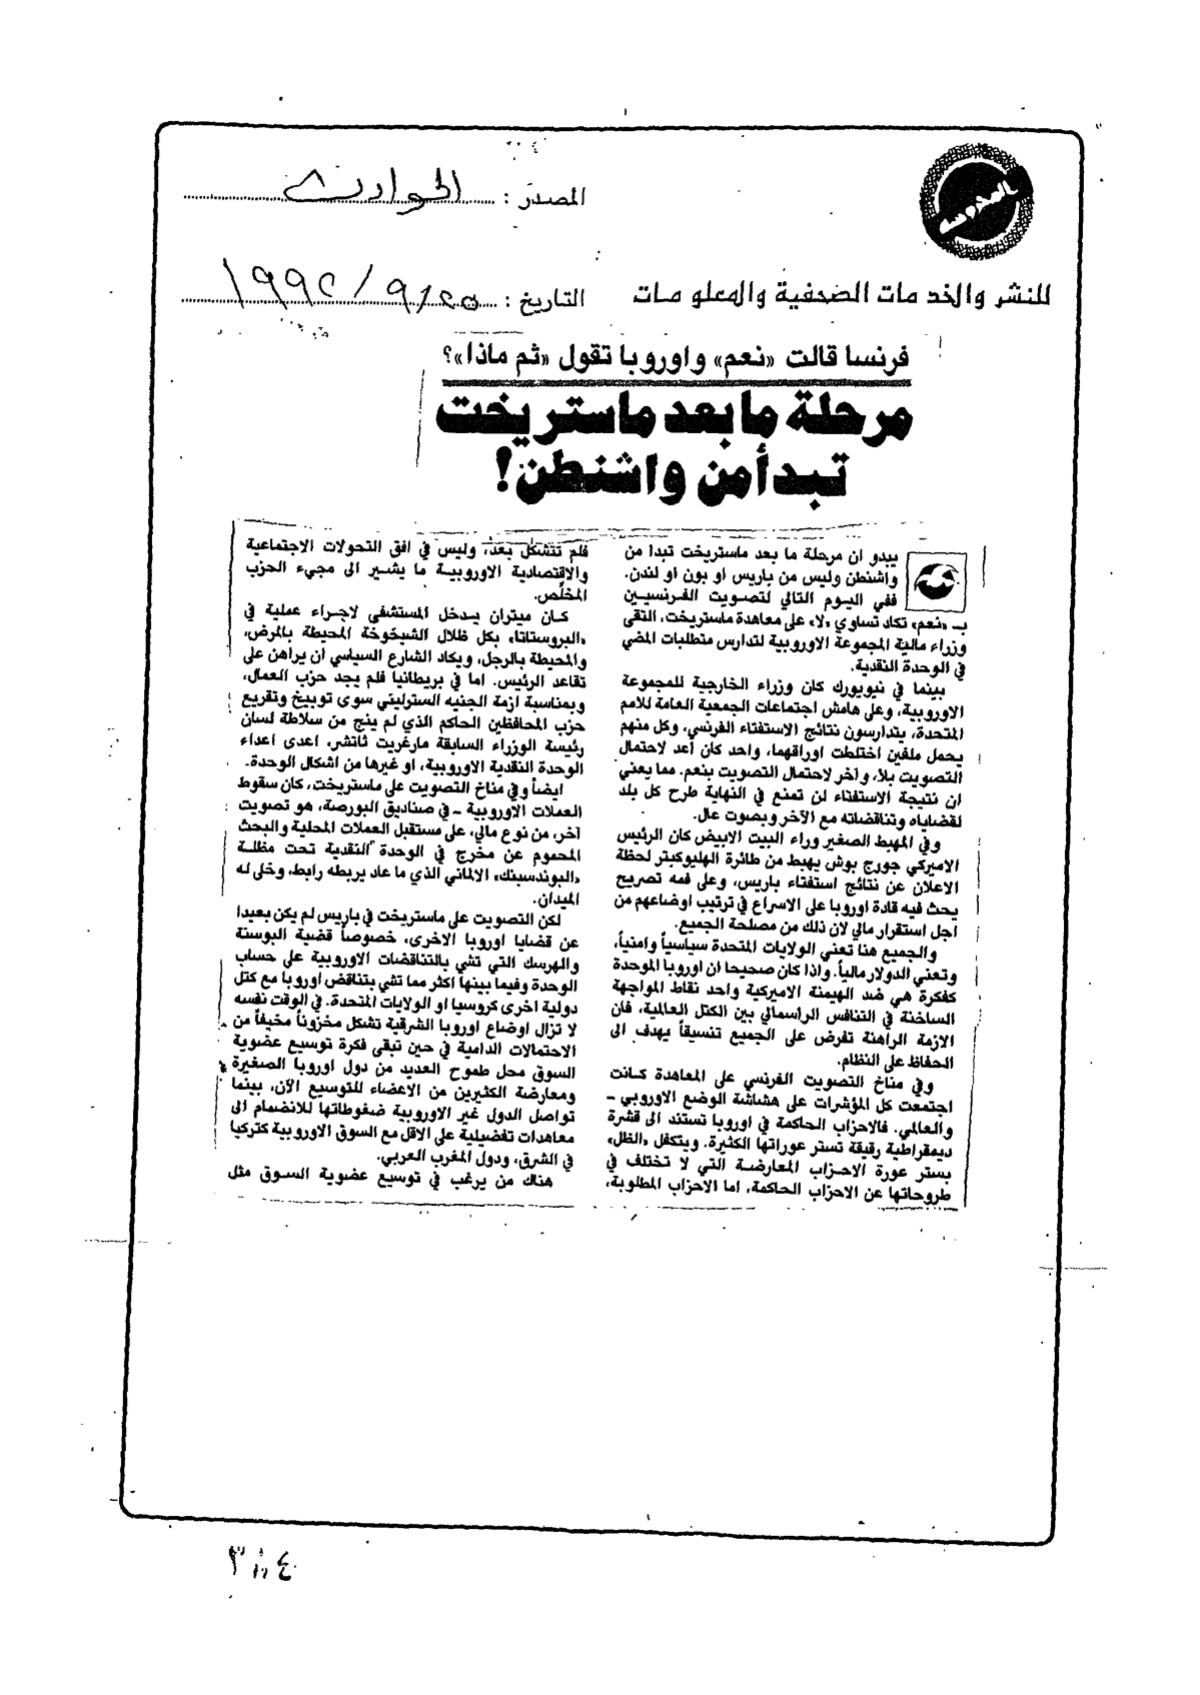 المصدر : الحوادث
للنشر والخدمات الصحفية والمعلومات
التاريخ : ٢٥/٩/١٩٩٢
فرنسا قالت «نعم» واوروبا تقول «ثم ماذا»؟
مرحلة ما بعد ماستريخت
تبدأ من واشنطن!
يبدو ان مرحلة ما بعد ماستريخت تبدأ من
واشنطن وليس من باريس او بون او لندن.
ففي اليوم التالي لتصويت الفرنسيين
بـ «نعم» تكاد تساوي «لا» على معاهدة ماستريخت، التقى
وزراء مالية المجموعة الاوروبية لتدارس متطلبات المضي
في الوحدة النقدية.
بينما في نيويورك كان وزراء الخارجية للمجموعة
الاوروبية، وعلى هامش اجتماعات الجمعية العامة للامم
المتحدة، يتدارسون نتائج الاستفتاء الفرنسي، وكل منهم
يحمل ملفين اختلطت اوراقهما، واحد كان أعد لاحتمال
التصويت بلا، وآخر لاحتمال التصويت بنعم. مما يعني
ان نتيجة الاستفتاء لن تمنع في النهاية طرح كل بلد
لقضاياه وتناقضاته مع الآخر وبصوت عال.
وفي المهبط الصغير وراء البيت الابيض كان الرئيس
الاميركي جورج بوش يهبط من طائرة الهليوكبتر لحظة
الاعلان عن نتائج استفتاء باريس، وعلى فمه تصريح
يحث فيه قادة اوروبا على الاسراع في ترتيب اوضاعهم من
اجل استقرار مالي لان ذلك من مصلحة الجميع.
والجميع هنا تعني الولايات المتحدة سياسياً وامنياً،
وتعني الدولار مالياً. واذا كان صحيحا ان اوروبا الموحدة
كفكرة هي ضد الهيمنة الاميركية واحد نقاط المواجهة
الساخنة في التنافس الراسمالي بين الكتل العالمية، فان
الازمة الراهنة تفرض على الجميع تنسيقاً يهدف الى
الحفاظ على النظام.
وفي مناخ التصويت الفرنسي على المعاهدة كانت
اجتمعت كل المؤشرات على هشاشة الوضع الاوروبي -
والعالمي. فالاحزاب الحاكمة في اوروبا تستند الى قشرة
ديمقراطية رقيقة تستر عوراتها الكثيرة. ويتكفل «الظل»
بستر عورة الاحزاب المعارضة التي لا تختلف في
طروحاتها عن الاحزاب الحاكمة، اما الاحزاب المطلوبة،
فلم تتشكل بعد، وليس في افق التحولات الاجتماعية
والاقتصادية الاوروبية ما يشير الى مجيء الحزب
المخلّص.
كان ميتران يدخل المستشفى لاجراء عملية في
«البروستاتا» بكل ظلال الشيخوخة المحيطة بالمرض،
والمحيطة بالرجل، ويكاد الشارع السياسي ان يراهن على
تقاعد الرئيس. اما في بريطانيا فلم يجد حزب العمال،
وبمناسبة ازمة الجنيه الاسترليني سوى توبيخ وتقريع
حزب المحافظين الحاكم الذي لم ينج من سلاطة لسان
رئيسة الوزراء السابقة مارغريت ثاتشر، اعدى اعداء
الوحدة النقدية الاوروبية، او غيرها من اشكال الوحدة.
ايضاً وفي مناخ التصويت على ماستريخت، كان سقوط
العملات الاوروبية - في صناديق البورصة، هو تصويت
آخر، من نوع مالي، على مستقبل العملات المحلية والبحث
المحموم عن مخرج في الوحدة النقدية تحت مظلة
«البوندسبنك» الالماني الذي ما عاد يربطه رابط، وخلى له
الميدان.
لكن التصويت على ماستريخت في باريس لم يكن بعيدا
عن قضايا اوروبا الاخرى، خصوصاً قضية البوسنة
والهرسك التي تشي بالتناقضات الاوروبية على حساب
الوحدة وفيما بينها اكثر مما تشي بتناقض اوروبا مع كتل
دولية اخرى كروسيا او الولايات المتحدة. في الوقت نفسه
لا تزال اوضاع اوروبا الشرقية تشكل مخزوناً مخيفاً من
الاحتمالات الدامية في حين تبقى فكرة توسيع عضوية
السوق محل طموح العديد من دول اوروبا الصغيرة
ومعارضة الكثيرين من الاعضاء للتوسيع الآن، بينما
تواصل الدول غير الاوروبية ضغوطاتها للانضمام الى
معاهدات تفضيلية على الاقل مع السوق الاوروبية كتركيا
في الشرق، ودول المغرب العربي.
هناك من يرغب في توسيع عضوية السوق مثل